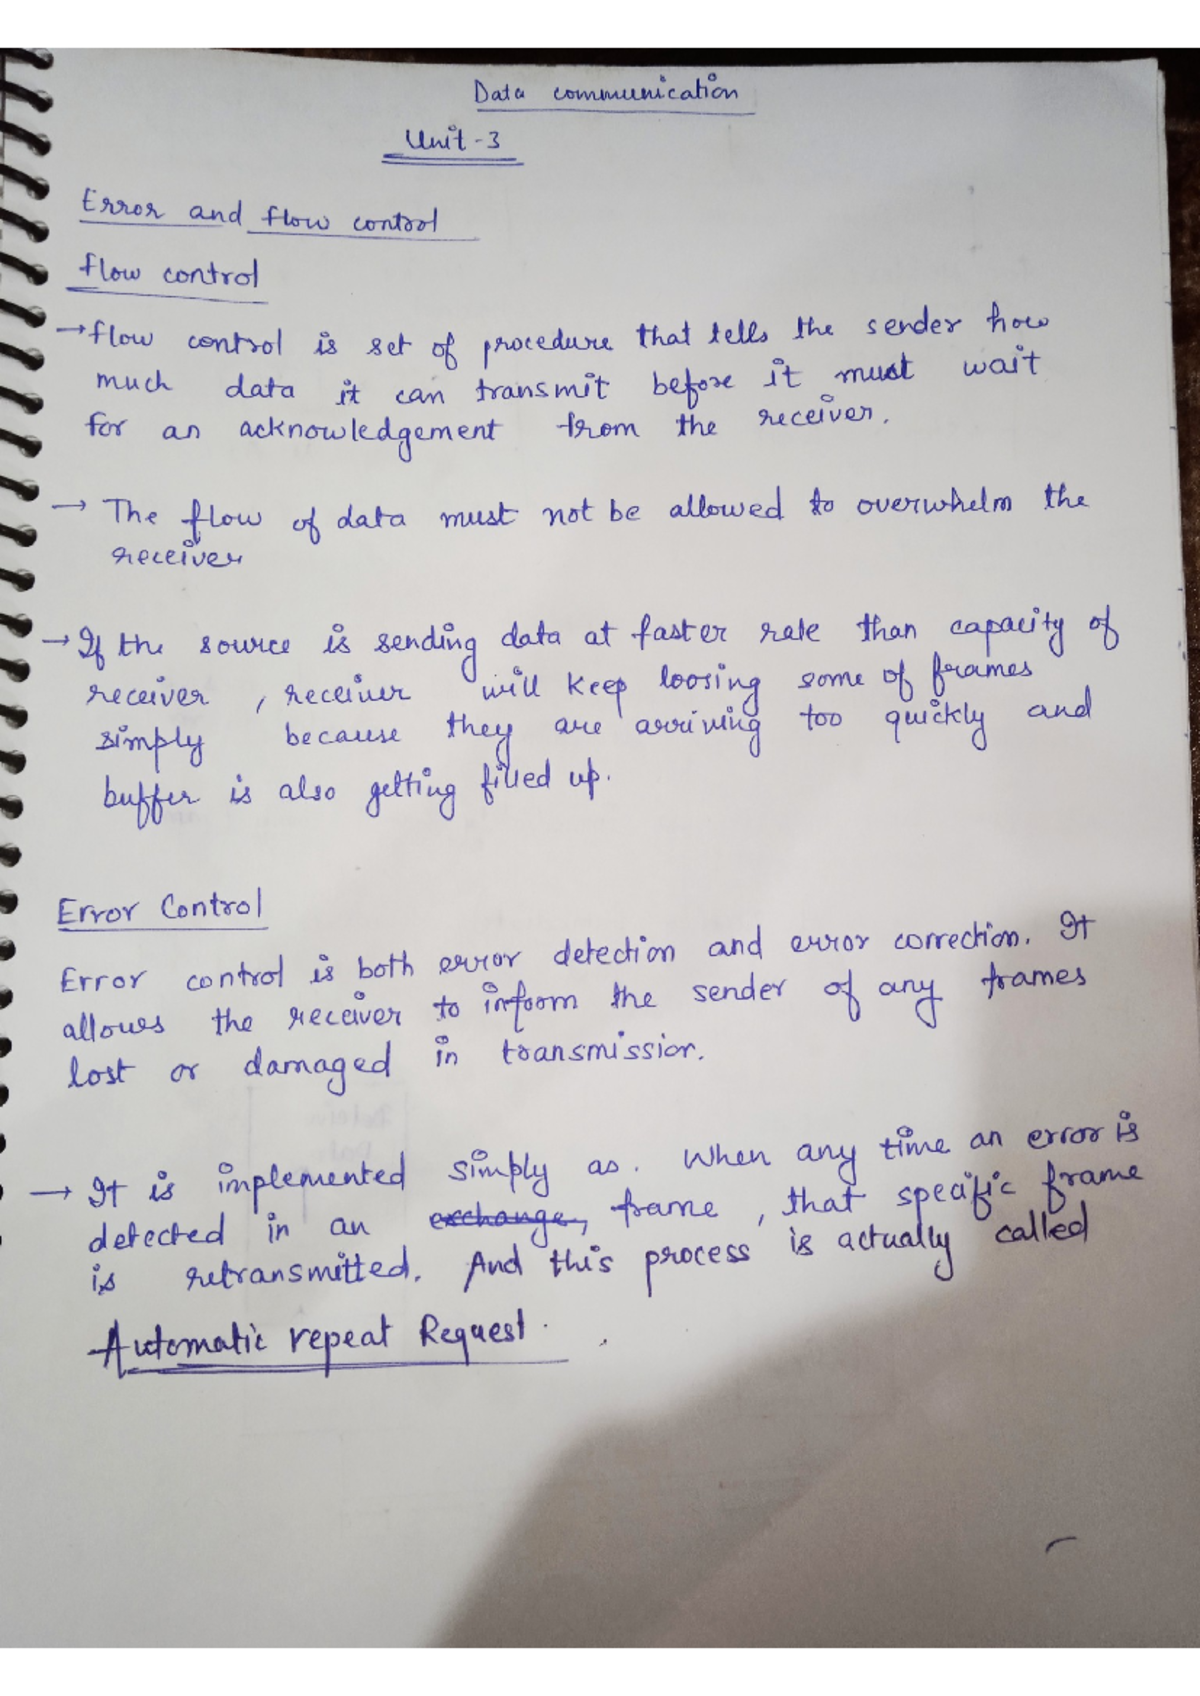 Data communication
Unit-3
Error and flow control
flow control
→ flow control is set of procedure that tells the sender how
much data it can transmit before it must wait
for an acknowledgement from the receiver.
→ The flow of data must not be allowed to overwhelm the
receiver
→ If the source is sending data at faster rate than capacity of
receiver, receiver will keep loosing some of frames
simply because they are arriving too quickly and
buffer is also getting filled up.
Error Control
Error control is both error detection and error correction. It
allows the receiver to inform the sender of any frames
lost or damaged in transmission.
→ It is implemented simply as. When any time an error is
detected in an exchange, frame, that specific frame
is retransmitted. And this process is actually called
Automatic repeat Request.